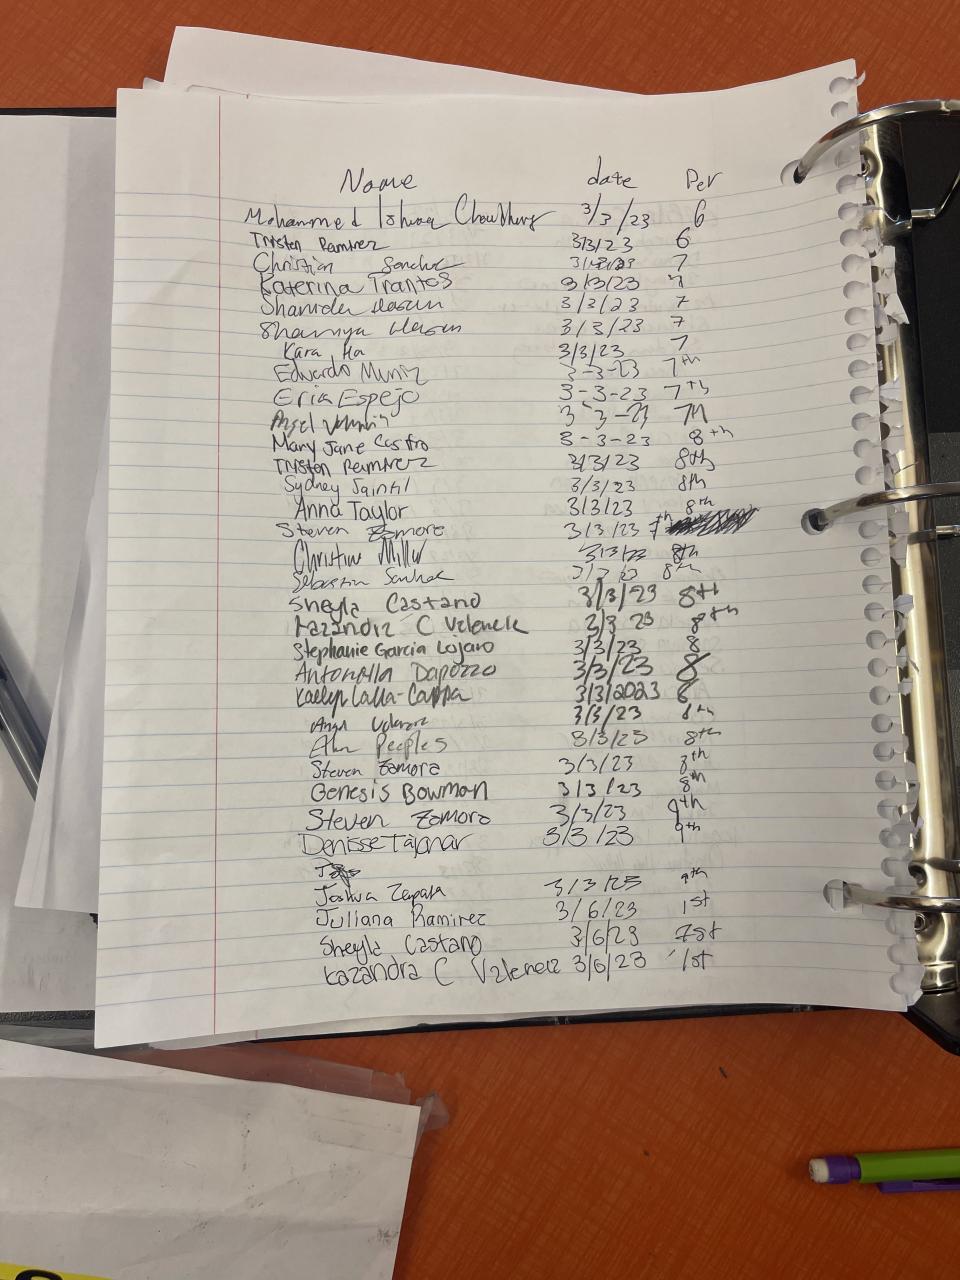 Name date Per
Mohammed Ishraq Choudhury 3/3/23 6
Trysten Ramirez 3/3/23 6
Christian Sanchez 7
Katerina Trantos 3/3/23 7
Shamida Hasun 3/3/23 7
Shamya Hasun 3/3/23 7
Kara Ha 3/3/23 7
Edwardo Muniz 3-3-23 7th
Eria Espejo 3-3-23 7th
Angel 3-3-23 7th
Mary Jane Castro 3-3-23 8th
Trysten Ramirez 3/3/23 8th
Sydney Saintil 3/3/23 8th
Anna Taylor 3/3/23 8th
Steven Zamora 3/3/23 7th
Christine Miller 3/3/23 8th
Sebastian 3/3/23 8th
Sheyla Castano 3/3/23 8th
Kazandra C Valencia 3/3 23 8th
Stephanie Garcia Lojano 3/3/23 8
Antonella Dapozzo 3/3/23 8
Kaelyn Lalla-Cappa 3/3/2023 8
Angel 3/3/23 8th
Peeples 3/3/23 8th
Steven Zamora 3/3/23 8th
Genesis Bowman 3/3/23 8th
Steven Zamora 3/3/23 9th
Denisse Tajonar 3/3/23 9th
Joshua Zapata 3/3/23 9th
Juliana Ramirez 3/6/23 1st
Sheyla Castano 3/6/23 1st
Kazandra C Valencia 3/6/23 1st